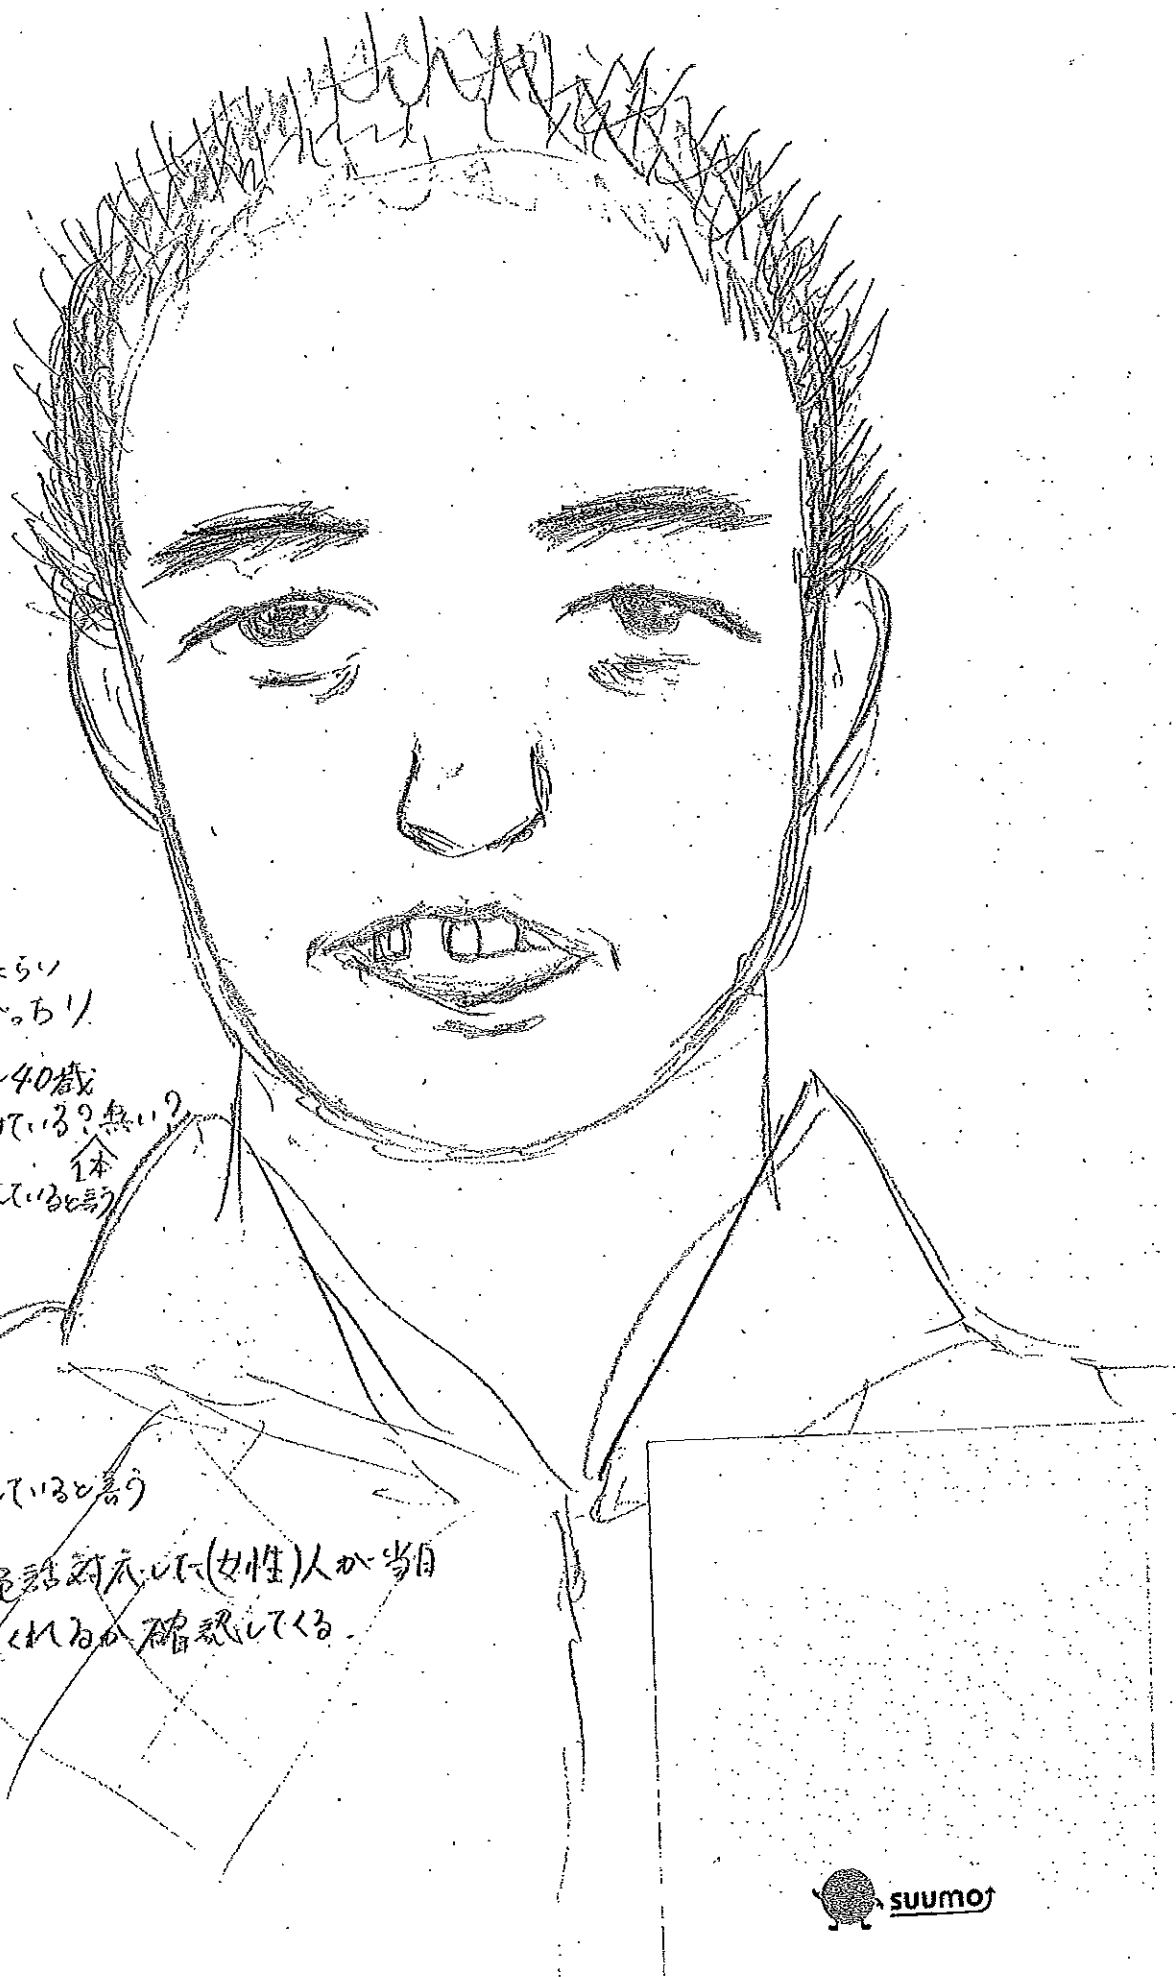 くらい
がっちり
~40歳
けている?無い?
1本
していると言う
していると言う
電話対応した(女性)人が当日
くれるか確認してくる.
suumo